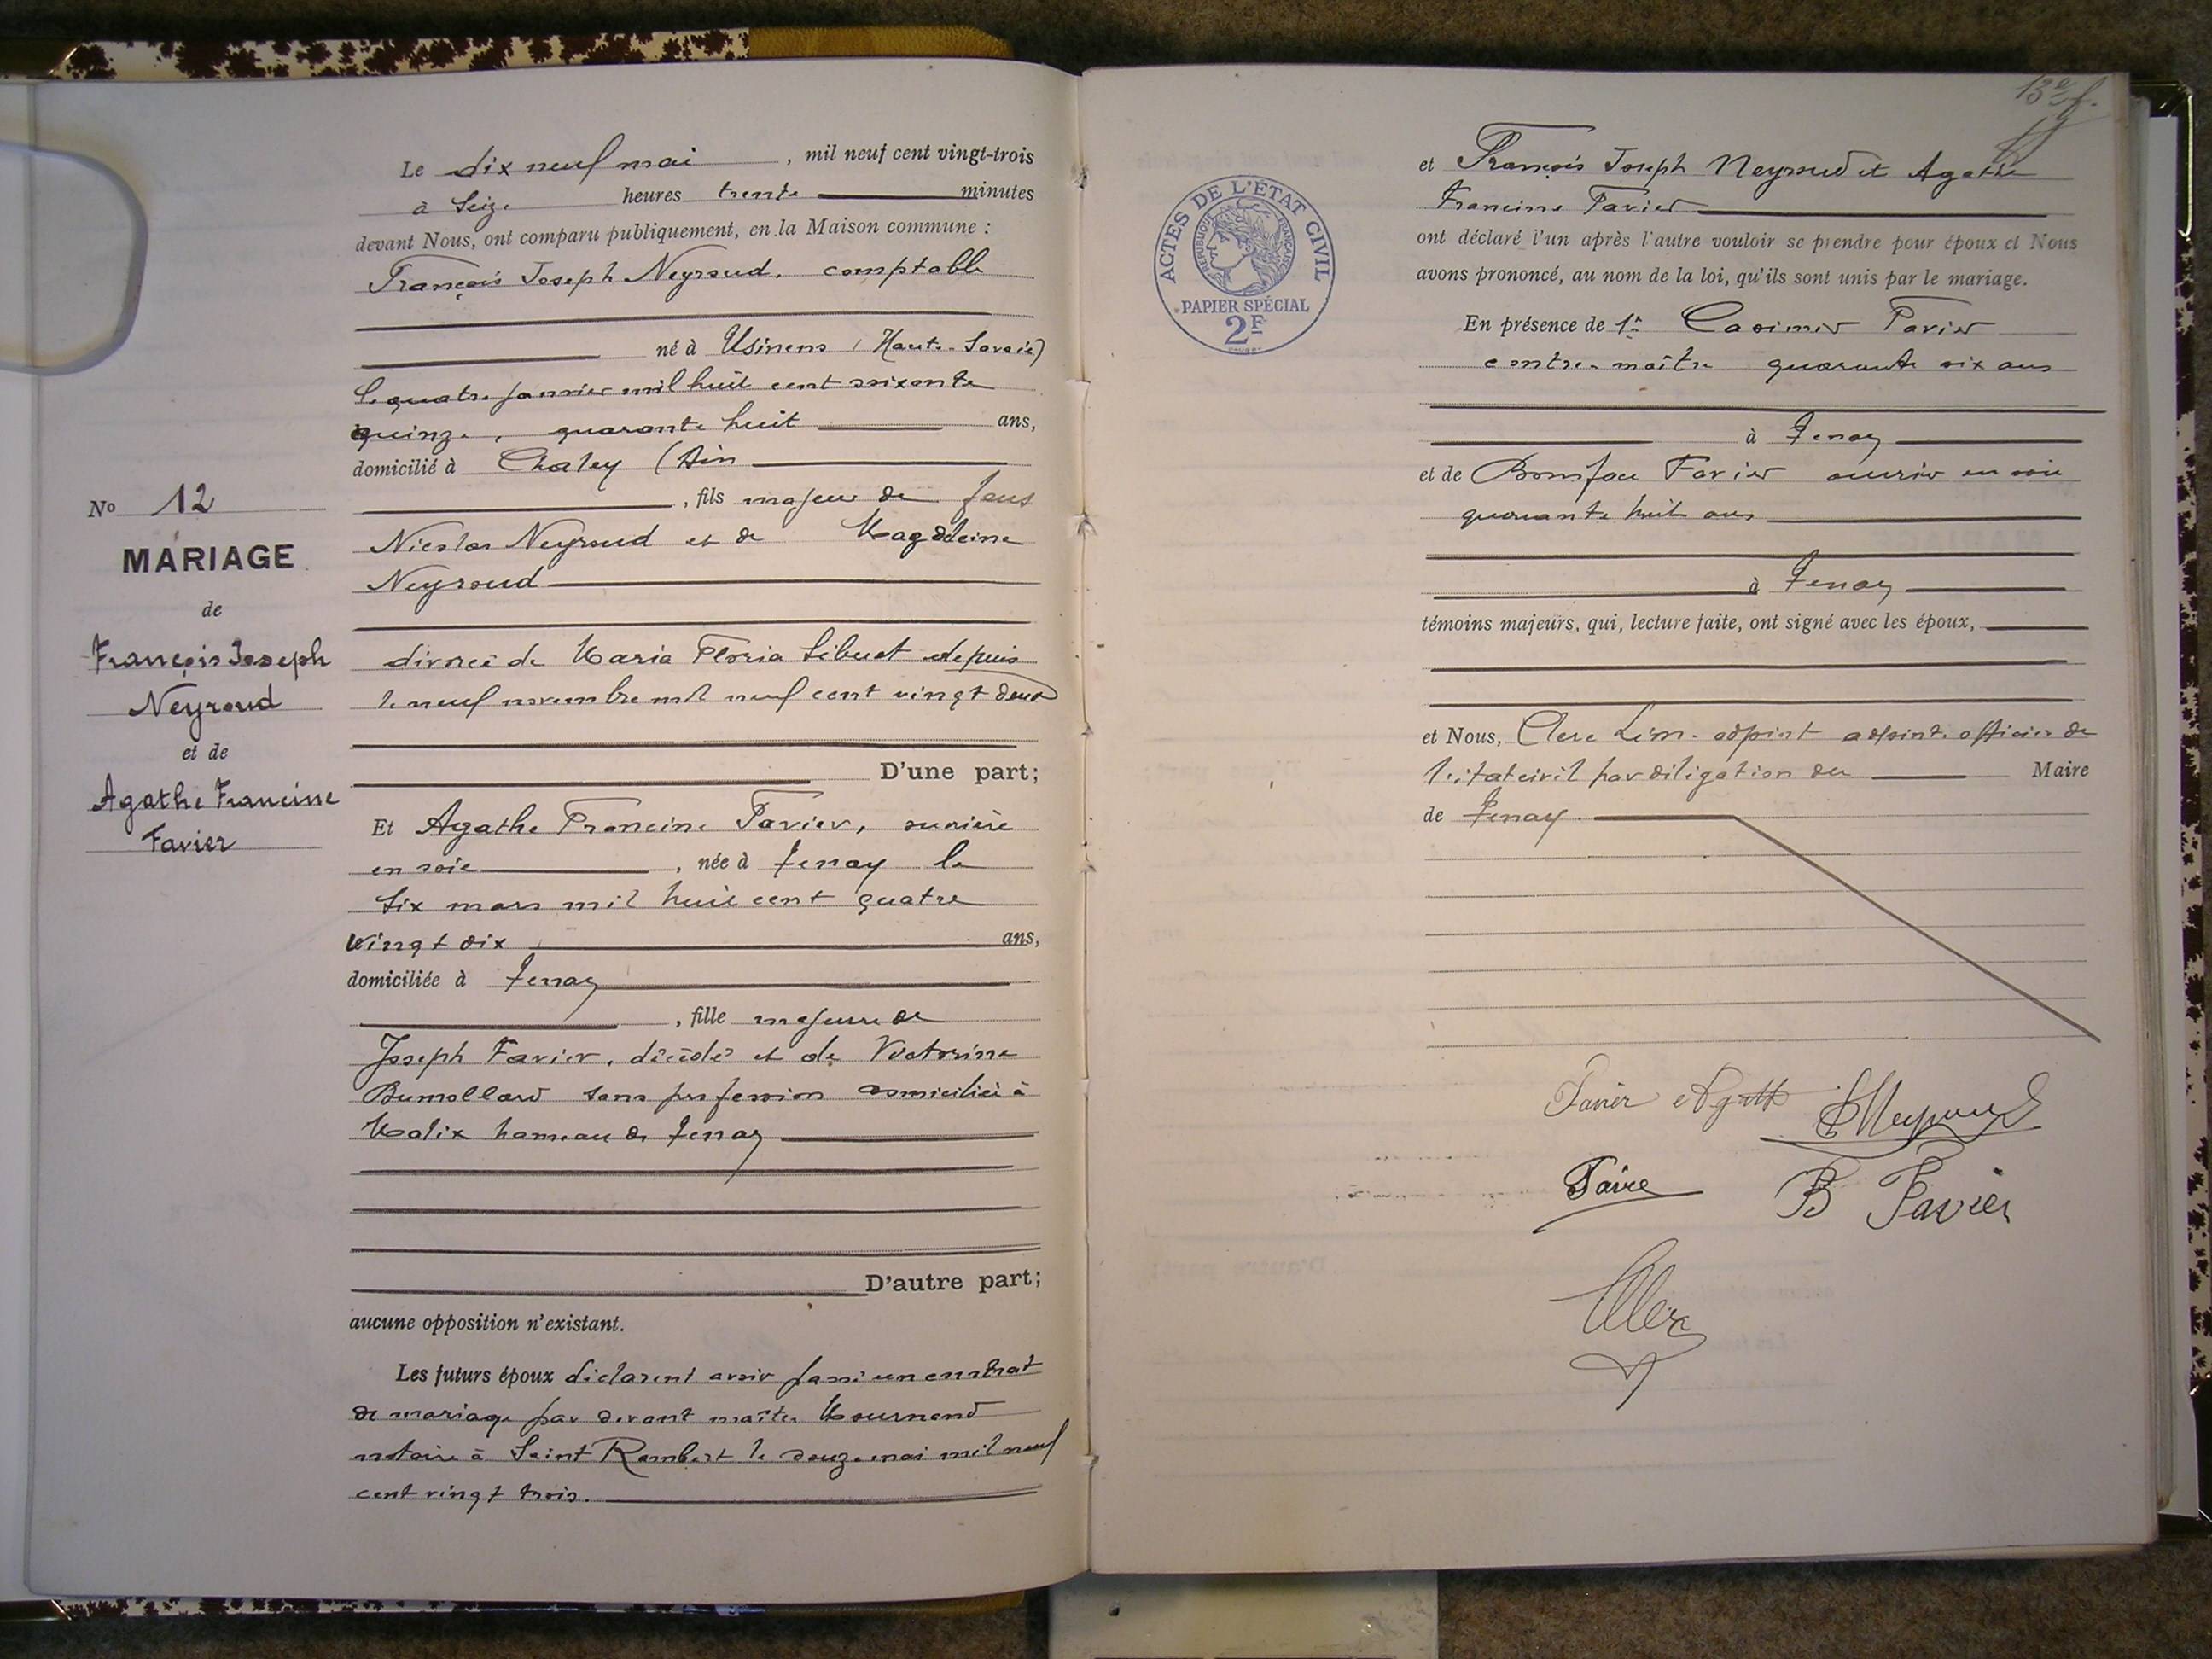 Le dix neuf mai , mil neuf cent vingt-trois
à Seize heures trente minutes
devant Nous, ont comparu publiquement, en la Maison commune :
François Joseph Neyroud, comptable
né à Usinens (Haute-Savoie)
le quatre janvier mil huit cent soixante
quinze, quarante huit ans,
domicilié à Chaley (Ain
, fils majeur de feus
Nicolas Neyroud et de Magdeleine
Neyroud
divorcé de Maria Floria Sibuet depuis
le neuf novembre mil neuf cent vingt deux
D'une part;
No 12
MARIAGE
de
François Joseph
Neyroud
et de
Agathe Francine
Favier
Et Agathe Francine Favier, ouvrière
en soie , née à Tenay le
Six mars mil huit cent quatre
vingt dix ans,
domiciliée à Tenay
, fille majeure de
Joseph Favier, décédé et de Victorine
Dumollard sans profession domiciliée à
Malix hameau de Tenay
D'autre part;
aucune opposition n'existant.
Les futurs époux déclarent avoir passé un contrat
de mariage par devant maître Mournand
notaire à Saint Rambert le douze mai mil neuf
cent vingt trois.
13e f.
ACTES DE L'ÉTAT CIVIL
RÉPUBLIQUE FRANÇAISE
PAPIER SPÉCIAL
2F
et François Joseph Neyroud et Agathe
Francine Favier
ont déclaré l'un après l'autre vouloir se prendre pour époux et Nous
avons prononcé, au nom de la loi, qu'ils sont unis par le mariage.
En présence de 1° Casimir Favier
contre-maître quarante six ans
à Tenay
et de Boniface Favier ouvrier en soie
quarante huit ans
à Tenay
témoins majeurs, qui, lecture faite, ont signé avec les époux,
et Nous, Clerc Léon adjoint adjoint officier de
l'état civil par délégation du Maire
de Tenay.
Favier Agathe
Neyroud
B Favier
Clerc